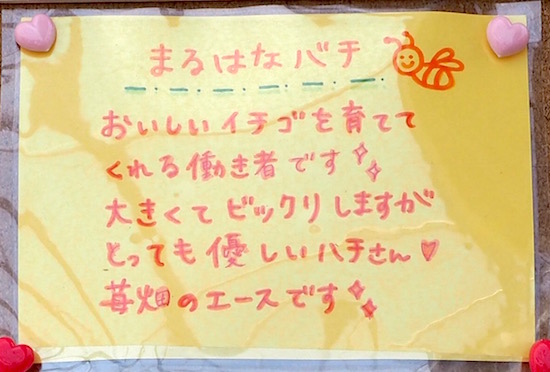 まるはなバチ
おいしいイチゴを育てて
くれる働き者です
大きくてビックリしますが
とっても優しいハチさん♡
苺畑のエースです